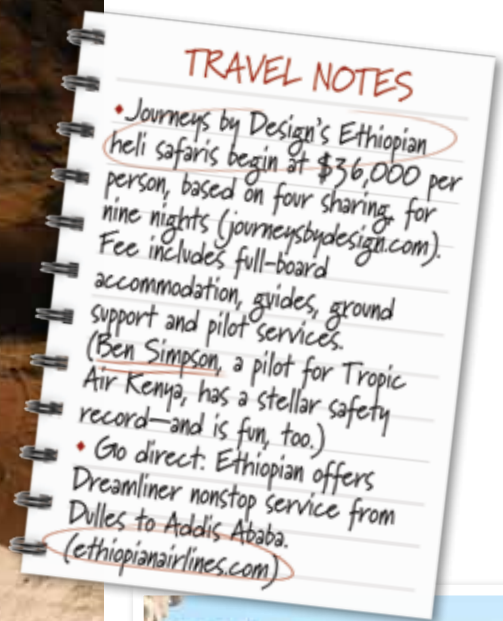 TRAVEL NOTES
• Journeys by Design's Ethiopian
heli safaris begin at $36,000 per
person, based on four sharing, for
nine nights (journeysbydesign.com).
Fee includes full-board
accommodation, guides, ground
support and pilot services.
(Ben Simpson, a pilot for Tropic
Air Kenya, has a stellar safety
record—and is fun, too.)
• Go direct: Ethiopian offers
Dreamliner nonstop service from
Dulles to Addis Ababa.
(ethiopianairlines.com)